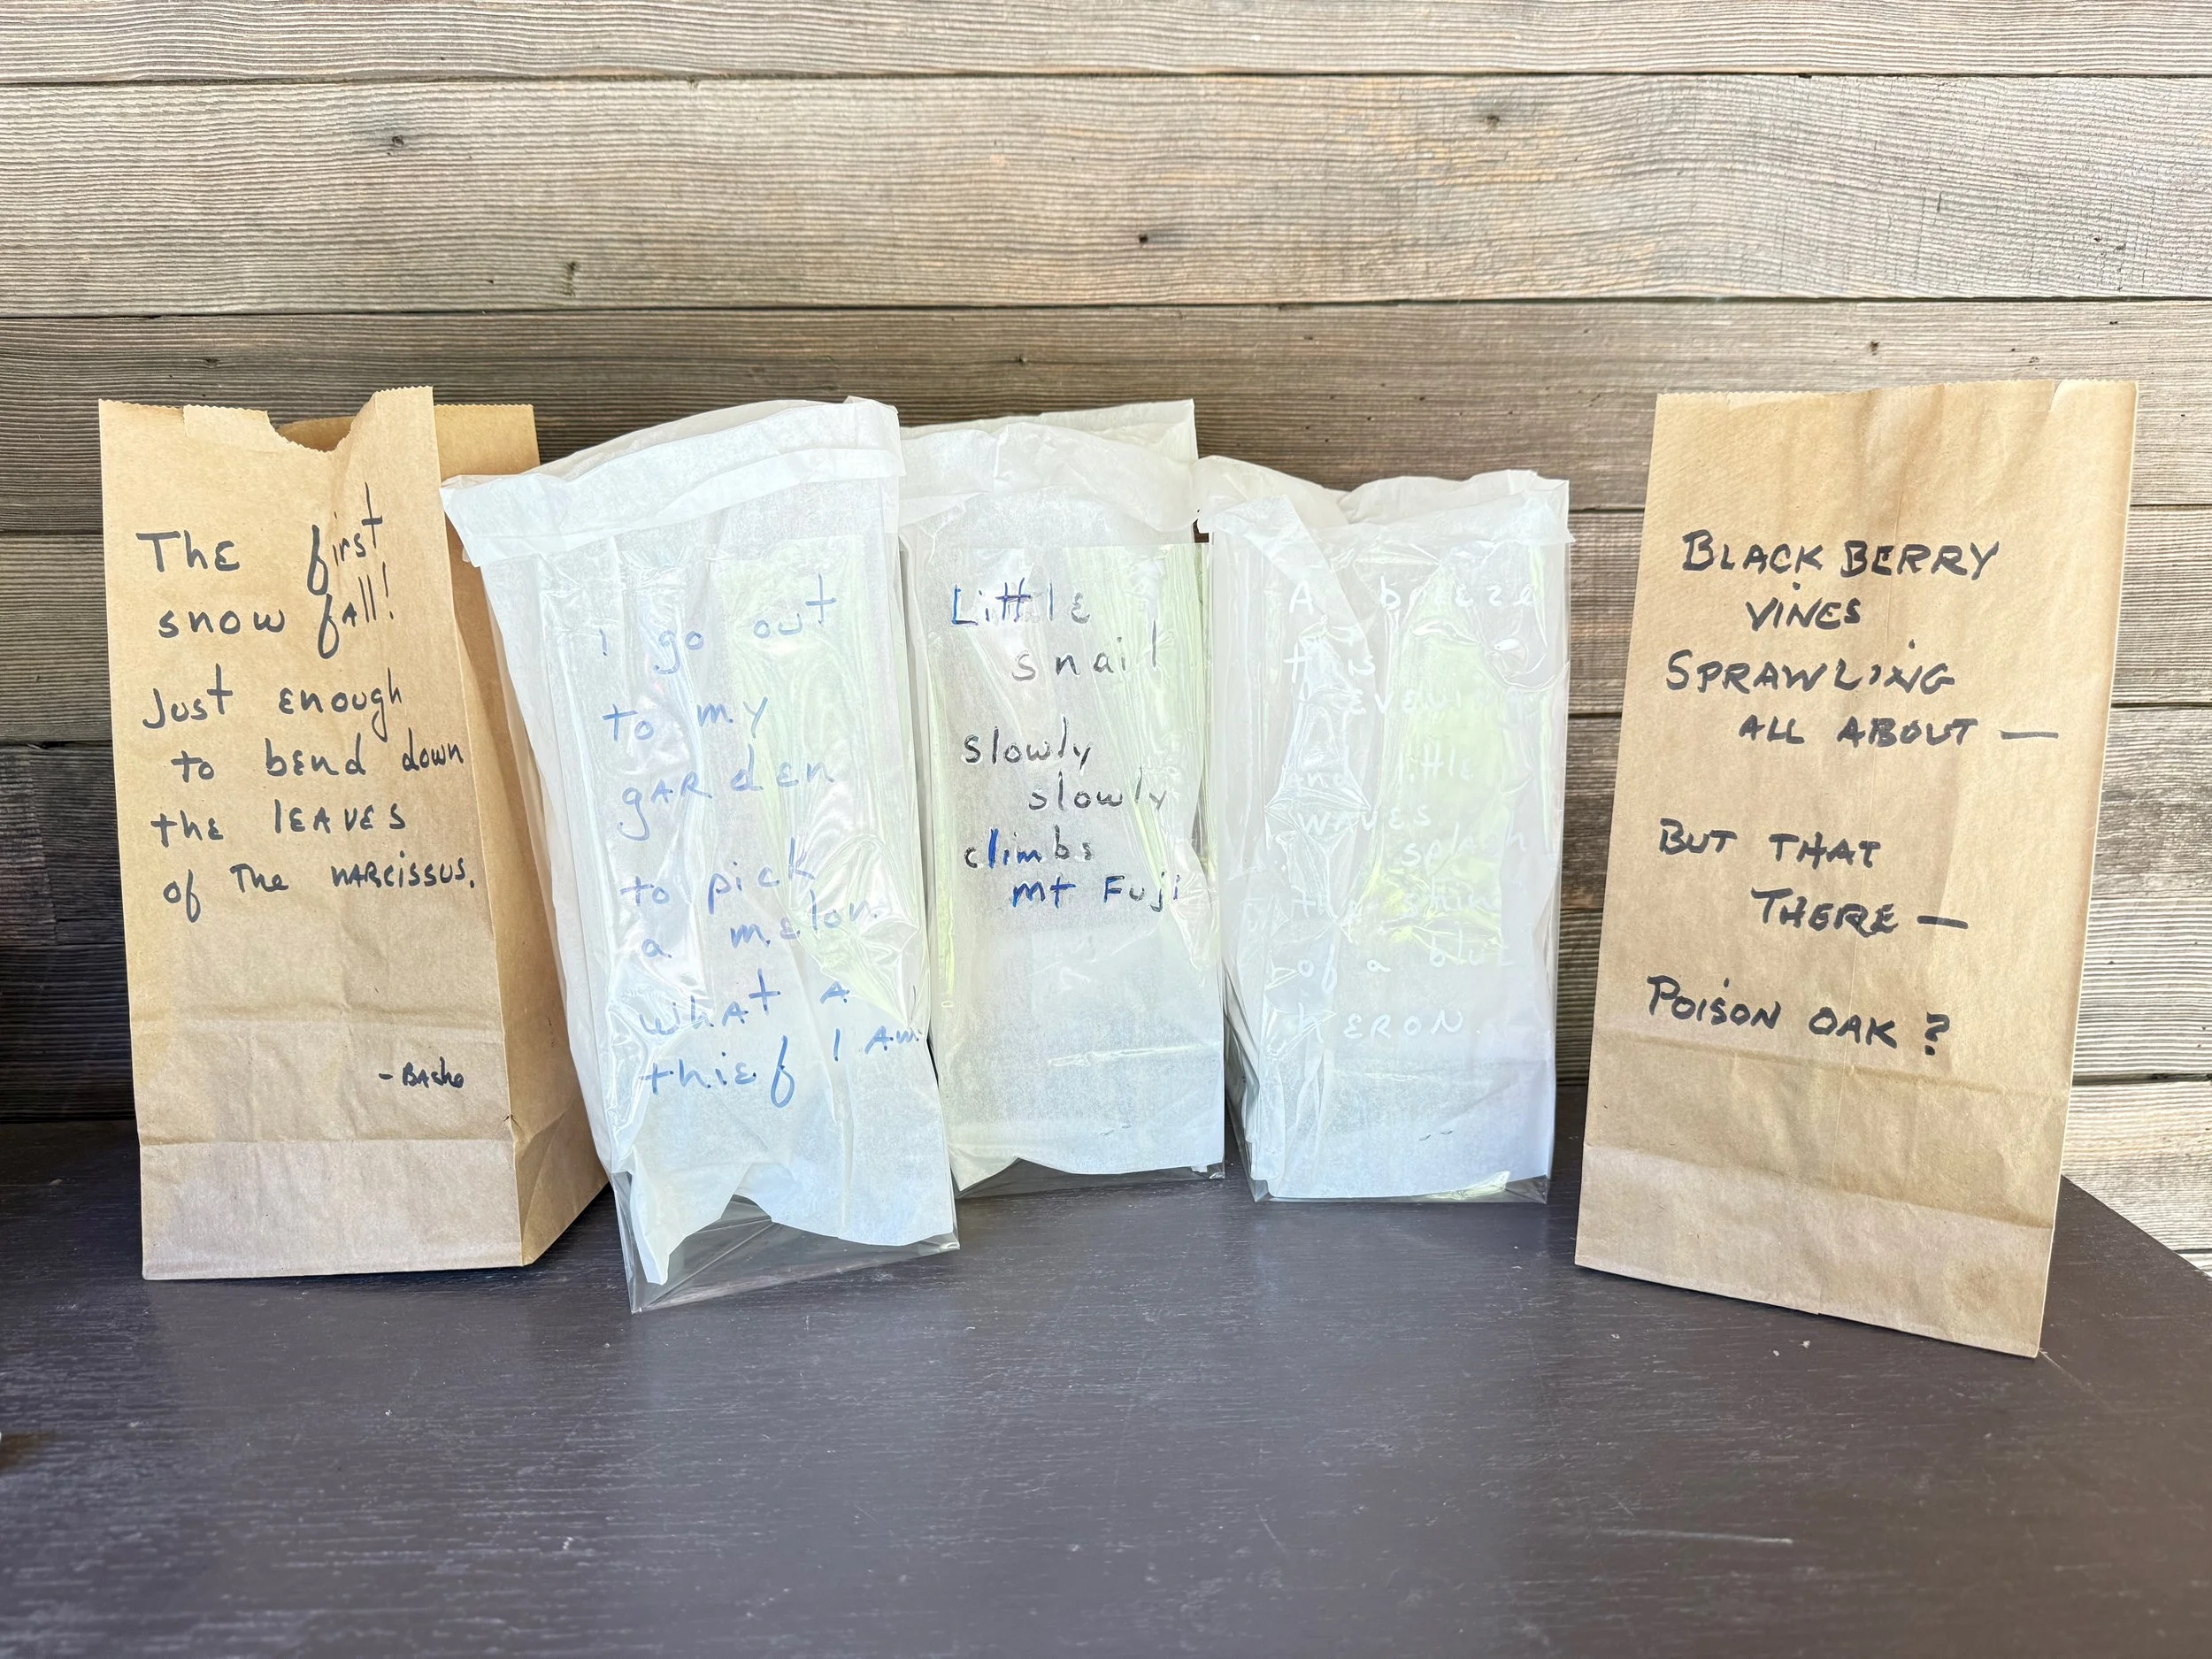 The first
snow fall!
Just enough
to bend down
the leaves
of The narcissus.
- Basho
I go out
to my
garden
to pick
a melon
what a
thief I am
Little
snail
slowly
slowly
climbs
mt Fuji
A breeze
this
evening
and little
waves
splash
the shins
of a blue
HERON.
BLACKBERRY
VINES
SPRAWLING
ALL ABOUT —
BUT THAT
THERE —
POISON OAK?